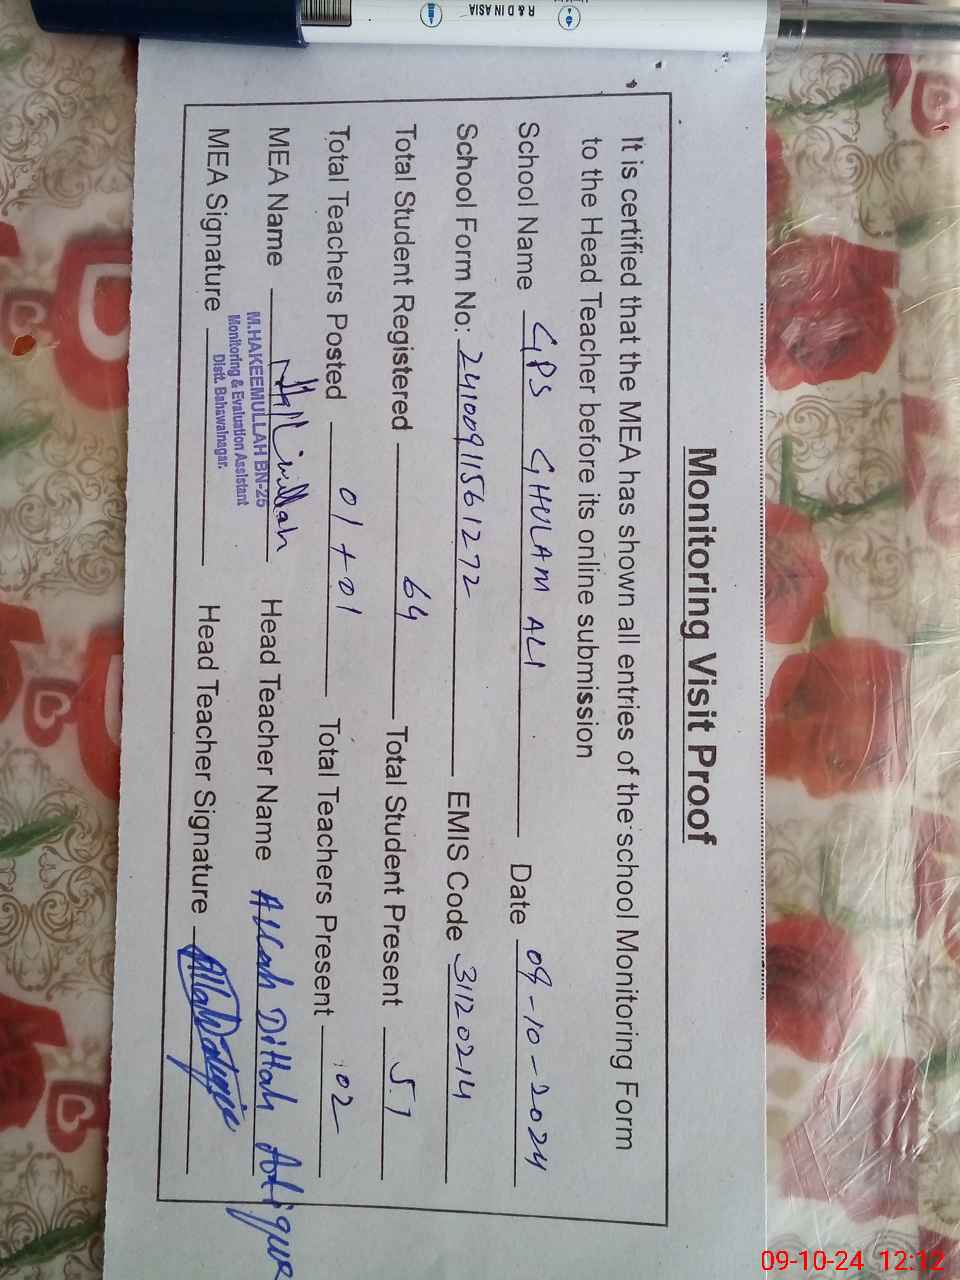 R & D IN ASIA
Monitoring Visit Proof
It is certified that the MEA has shown all entries of the school Monitoring Form
to the Head Teacher before its online submission
School Name GPS GHULAM ALI Date 09-10-2024
School Form No: 2410091156 1272 EMIS Code 31120214
Total Student Registered 64 Total Student Present 57
Total Teachers Posted 01 + 01 Total Teachers Present 02
MEA Name Head Teacher Name Allah Dittah
M.HAKEEMULLAH BN-25
Monitoring & Evaluation Assistant
Distt. Bahawalnagar.
MEA Signature Head Teacher Signature
09-10-24 12:12